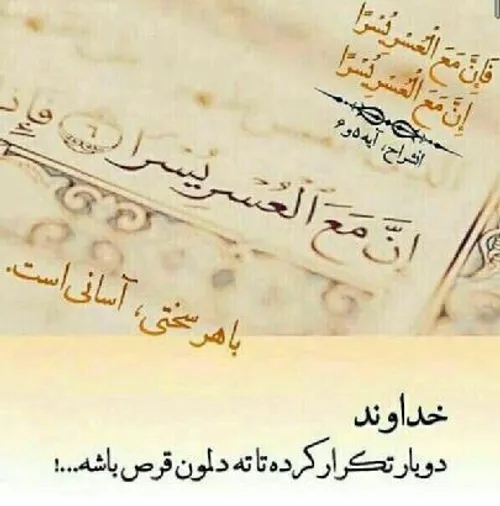 فَإِنَّ مَعَ الْعُسْرِ يُسْرًا
إِنَّ مَعَ الْعُسْرِ يُسْرًا
انشراح، آیه ۵ و ۶
إِنَّ مَعَ الْعُسْرِ يُسْرًا ٦
با هر سختی، آسانی است.
خداوند
دوبار تکرار کرده تا ته دلمون قرص باشه...!